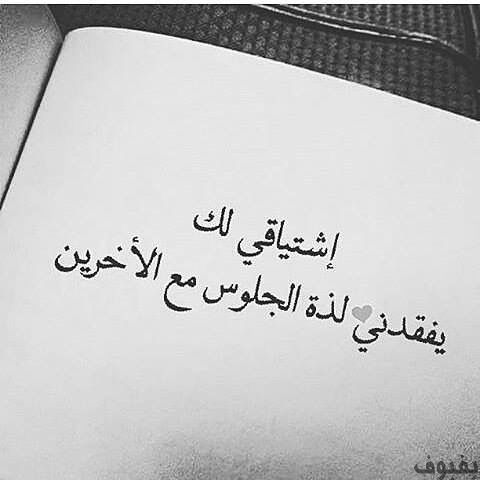 إشتياقي لك
يفقدني لذة الجلوس مع الأخرين